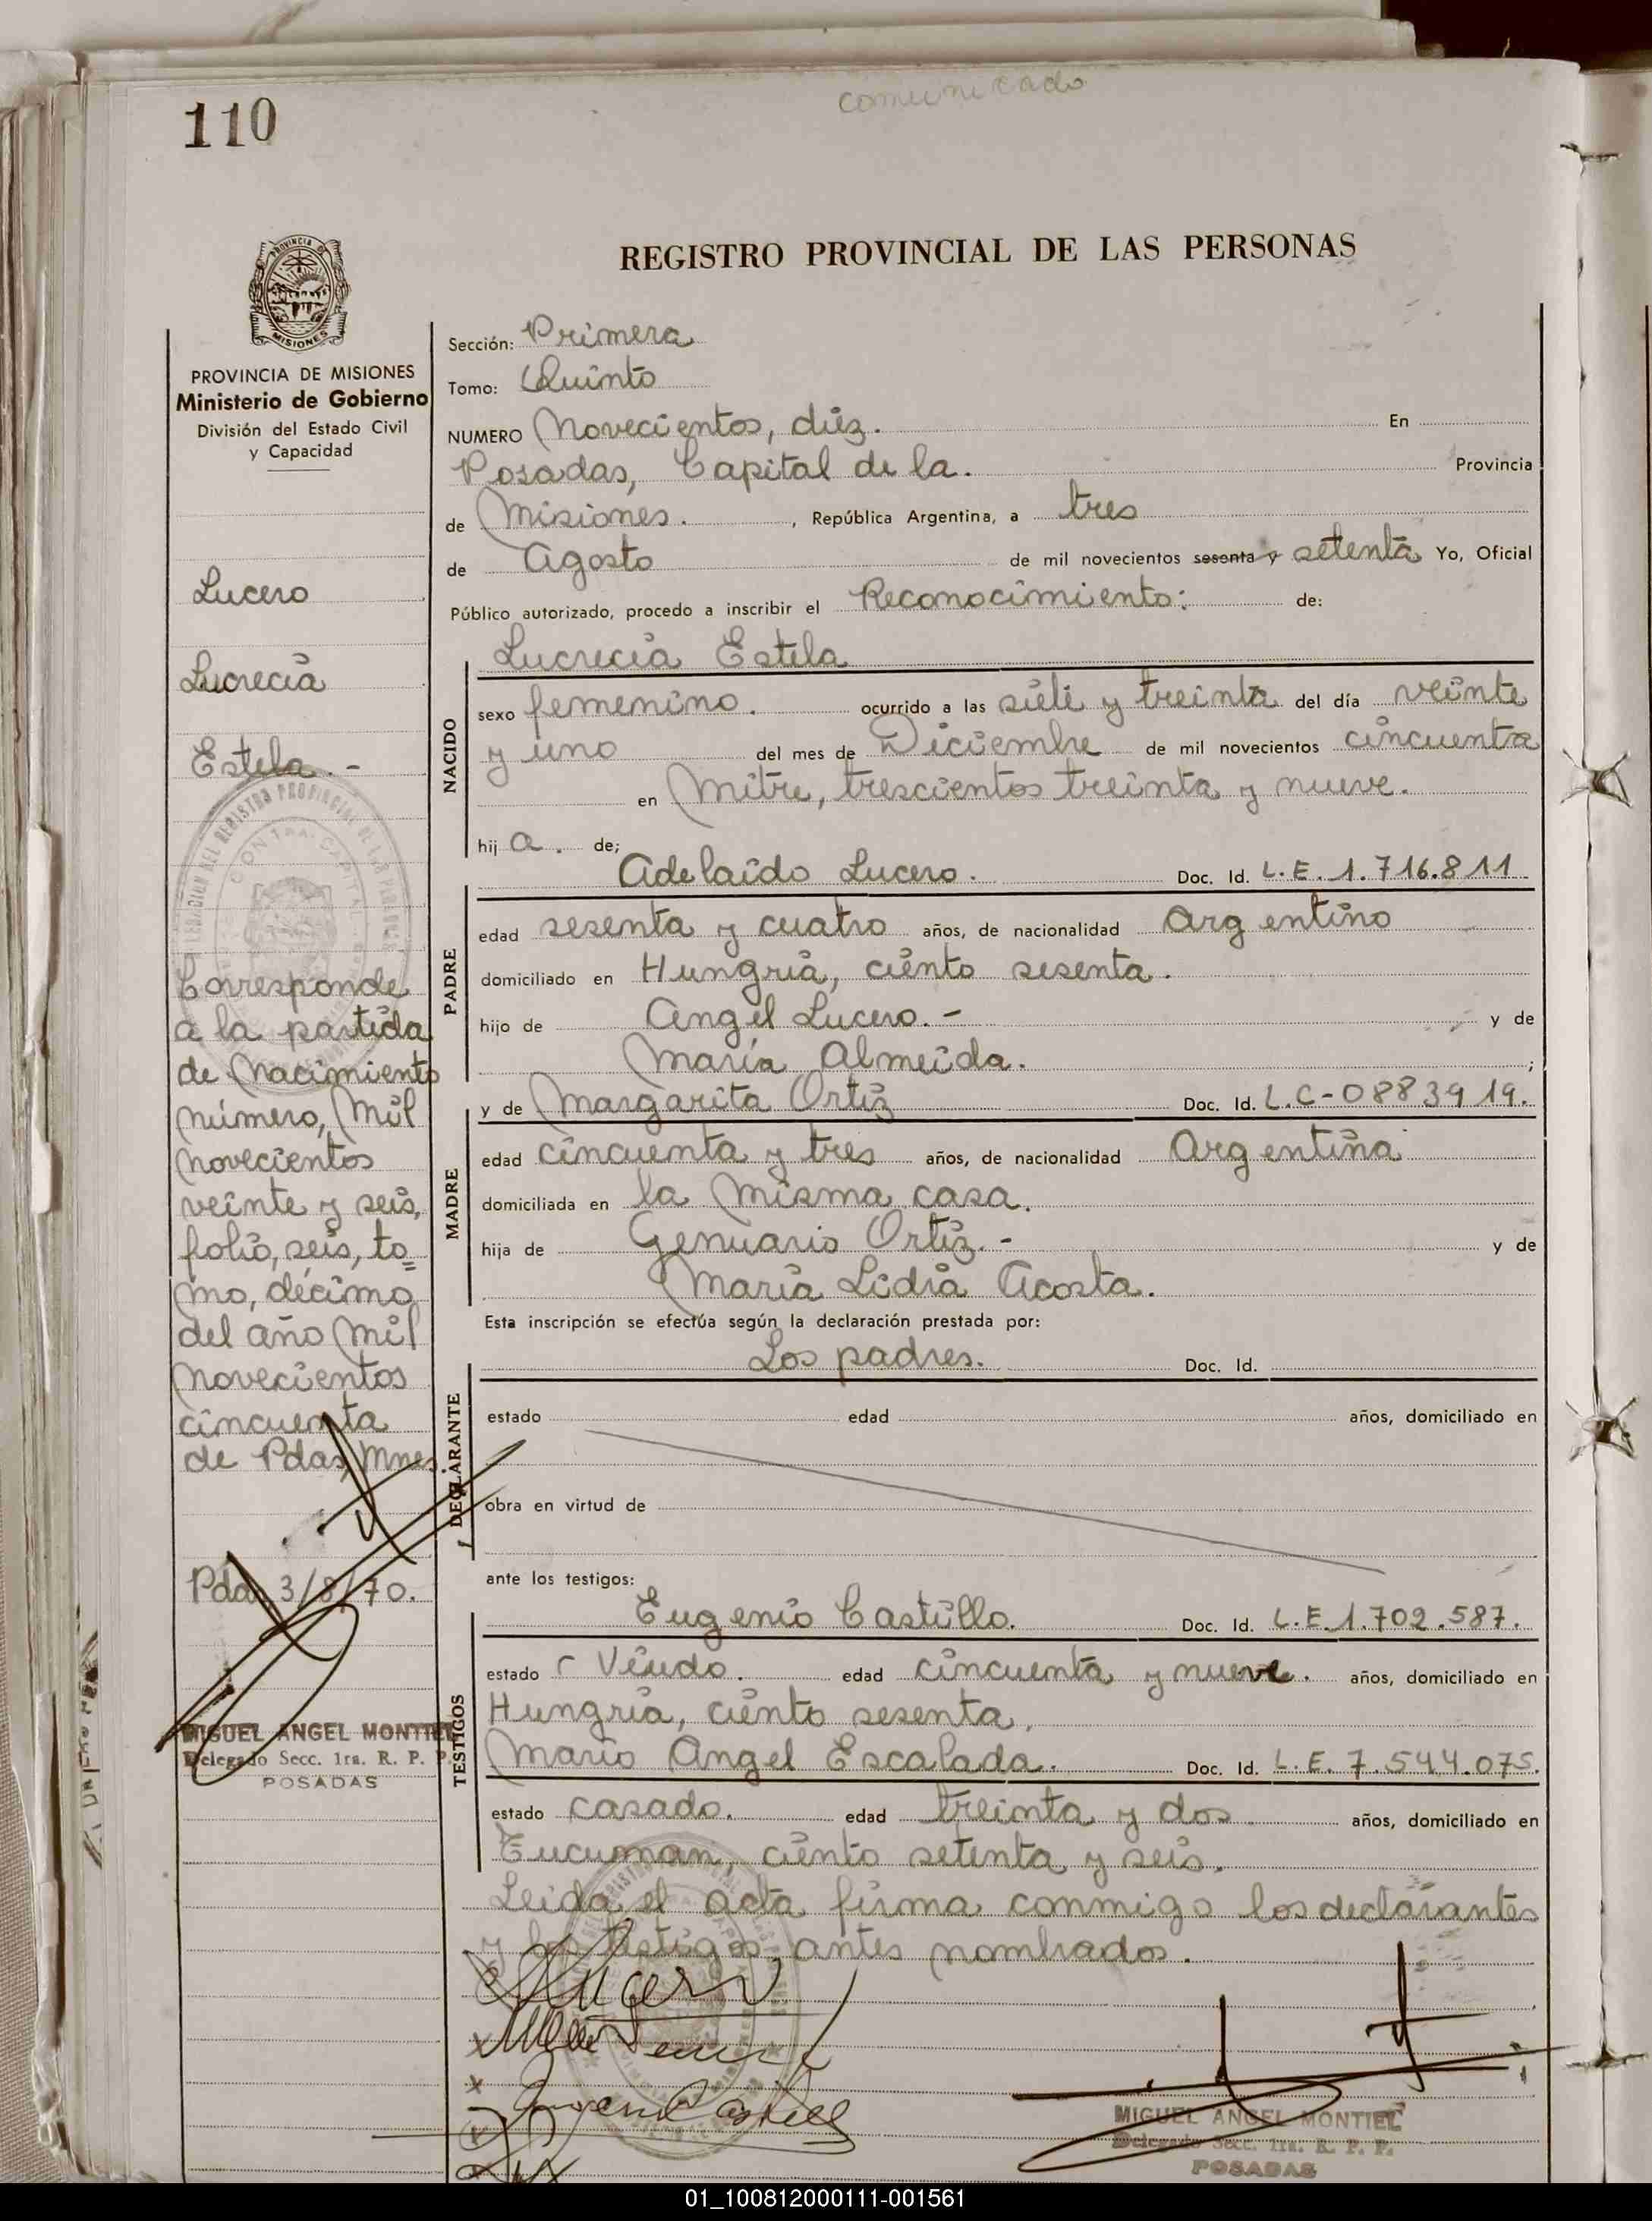 comunicado
110
REGISTRO PROVINCIAL DE LAS PERSONAS
PROVINCIA DE
MISIONES
PROVINCIA DE MISIONES
Ministerio de Gobierno
División del Estado Civil
y Capacidad
Lucero
Lucrecia
Estela.-
Corresponde
a la partida
de Nacimiento
número, Mil
novecientos
veinte y seis,
folio, seis, to=
mo, décimo
del año mil
novecientos
cincuenta
de Pdas, Mnes.
Pdas, 3/8/70.
MIGUEL ANGEL MONTIEL
Delegado Secc. 1ra. R. P. P.
POSADAS
Sección: Primera
Tomo: Quinto
NUMERO Novecientos, diez. En
Posadas, Capital de la. Provincia
de Misiones. , República Argentina, a tres
de Agosto de mil novecientos sesenta y setenta Yo, Oficial
Público autorizado, procedo a inscribir el Reconocimiento: de:
Lucrecia Estela
NACIDO
sexo femenino. ocurrido a las siete y treinta del día veinte
y uno del mes de Diciembre de mil novecientos cincuenta
en Mitre, trescientos treinta y nueve.
hij a. de;
Adelaido Lucero. Doc. Id. L.E. 1.716.811
PADRE
edad sesenta y cuatro años, de nacionalidad Argentino
domiciliado en Hungria, ciento sesenta.
hijo de Angel Lucero.- y de
María Almeida. ;
y de Margarita Ortiz Doc. Id. L.C-0883919.
MADRE
edad cincuenta y tres años, de nacionalidad Argentina
domiciliada en la misma casa.
hija de Genuario Ortiz.- y de
Maria Lidia Acosta.
Esta inscripción se efectúa según la declaración prestada por:
Los padres. Doc. Id.
DECLARANTE
estado edad años, domiciliado en
obra en virtud de
ante los testigos:
Eugenio Castillo. Doc. Id. L.E.1.702.587.
TESTIGOS
estado Viudo. edad cincuenta y nueve. años, domiciliado en
Hungria, ciento sesenta.
Mario Angel Escalada. Doc. Id. L.E. 7.544.075.
estado casado. edad treinta y dos años, domiciliado en
Tucuman, ciento setenta y seis.
Leida el acta firma conmigo los declarantes
y los testigos antes nombrados.
MIGUEL ANGEL MONTIEL
Delegado Secc. 1ra. R. P. P.
POSADAS
01_100812000111-001561